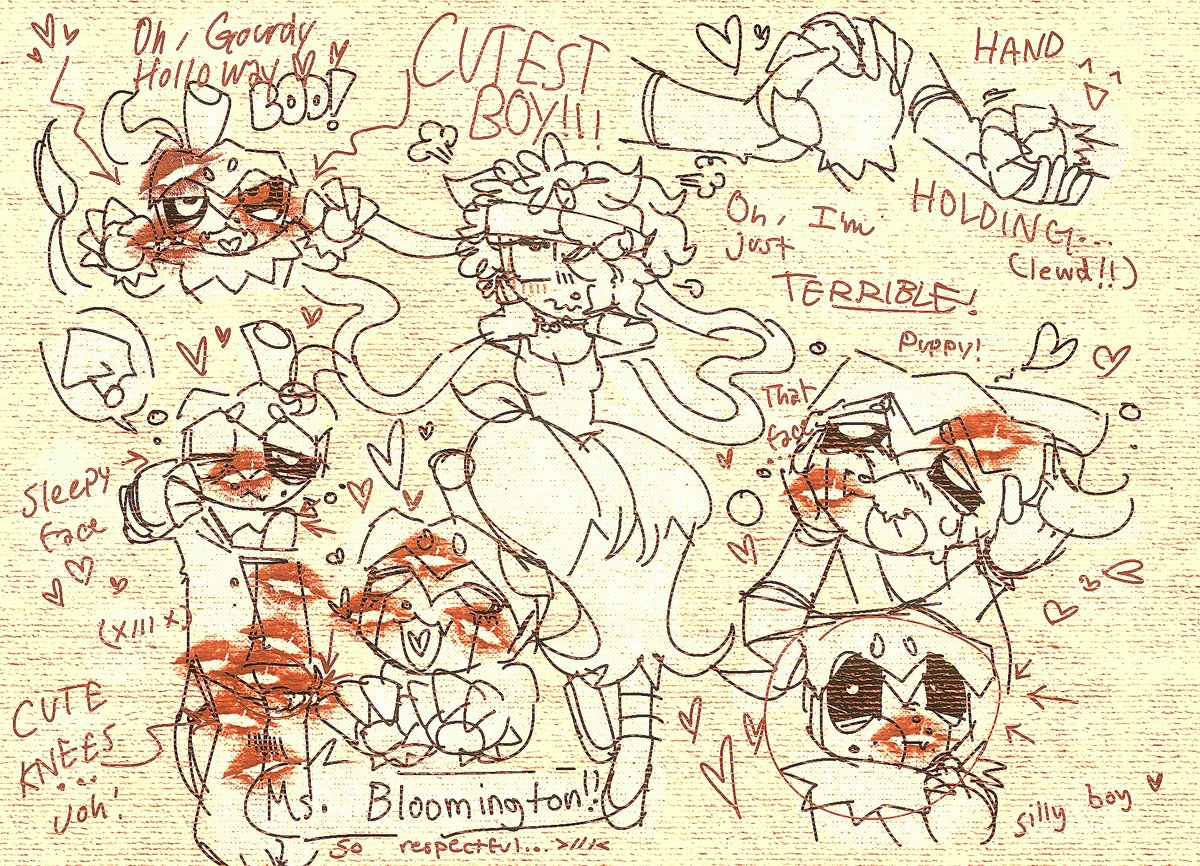 Oh, Gourdy
Holloway
BOO!
CUTEST
BOY!!!
HAND
HOLDING...
(lewd!!)
Oh, I'm
just
TERRIBLE!
Puppy!
That
face
Sleepy
face
(x///x)
CUTE
KNEES
uoh!
Ms. Bloomington!!
so respectful... >///<
silly boy